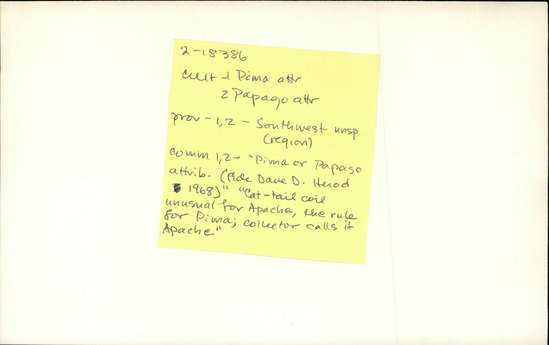 2-18386
cult - 1 Pima attr
2 Papago attr
prov - 1,2 - Southwest unsp
(region)
comm 1,2 - "Pima or Papago
attrib. (fide Dave D. Herod
1968)" "Cat-tail coil
unusual for Apache, the rule
for Pima; collector calls it
Apache"